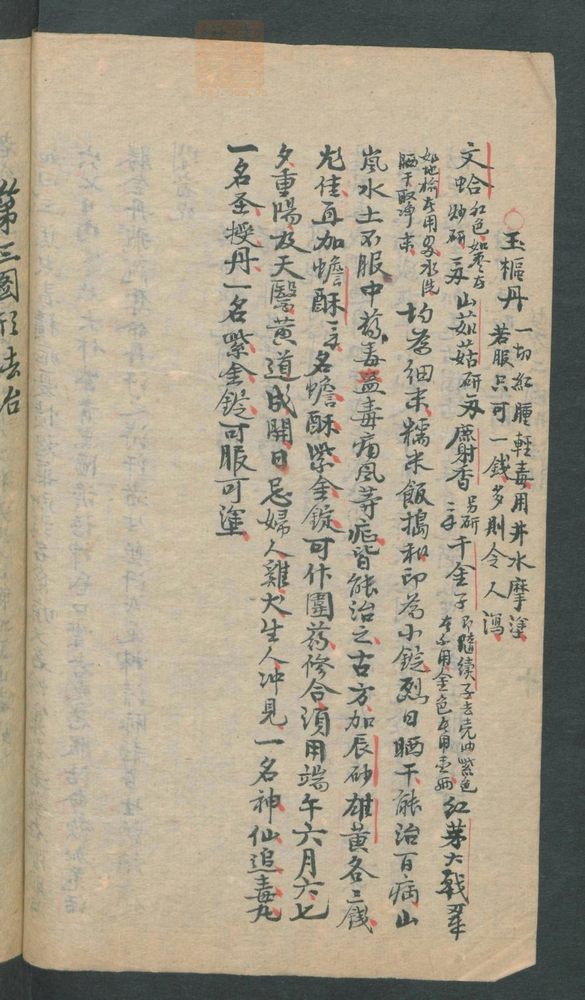 玉樞丹 一切紅腫輕毒用井水摩塗
若服只可一錢多則令人瀉
文蛤 紅色如棗者 炒研 山茈菇研 麝射香 另研 千金子 即隨續子去壳油紫色者不用金色者用 紅芽大戟
如地榆者用 水洗 晒干取净末 均為細末糯米飯搗和印為小錠烈日晒干能治百病山
嵐水土不服中葯毒蠱毒痛風等症皆能治之古方加辰砂雄黃各三錢
尤佳再加蟾酥 名蟾酥紫金錠可作圍葯修合須用端午六月六七
夕重陽及天醫黃道成開日忌婦人雞犬生人冲見一名神仙追毒丸
一名玉授丹一名紫金錠可服可塗
第三圖形去治